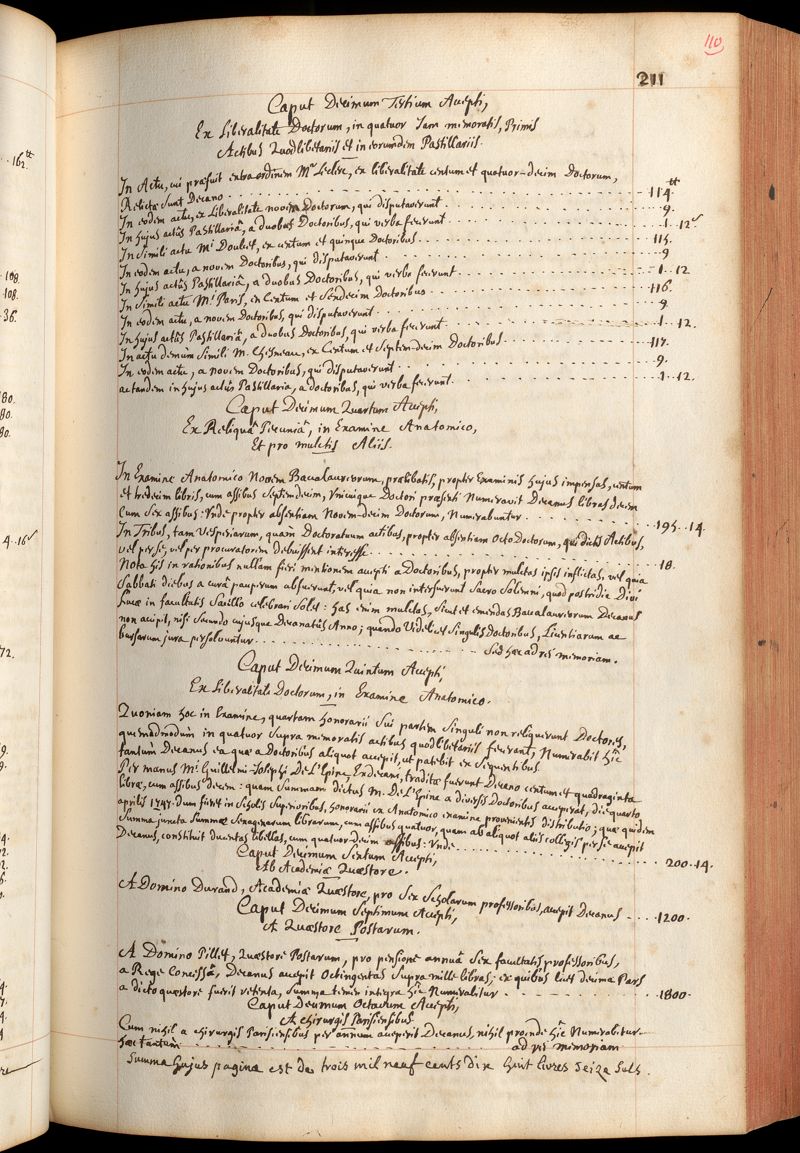 110
211
Caput Decimum Tertium Accepti,
Ex Liberalitate Doctorum, in quatuor Iam memoratis, Primis
Actibus Quodlibetariis et in eorumdem Pastillariis.
In Actu, cui præfuit extra ordinem Mr Leclerc, ex liberalitate centum et quatuor-decim Doctorum,
Relictæ Sunt Decano . . . 114  tt
In eodem actu, ex Liberalitate novem Doctorum, qui disputaverunt . . . 9
In hujus actûs Pastillariâ, a duobus Doctoribus, qui verba fecerunt . . . 1 . 12 s
In Simili actu Mi Doublet, ex centum et quinque Doctoribus . . . 115.
In eodem actu, a novem Doctoribus, qui disputaverunt . . . 9
In hujus actûs Pastillariâ, a duobus Doctoribus, qui verba fecerunt . . . 1 . 12
In Simili actu Mi Paris, ex Centum et Sexdecim Doctoribus . . . 116.
In eodem actu, a novem Doctoribus, qui disputaverunt . . . 9.
In hujus actûs Pastillariâ, a duobus Doctoribus, qui verba fecerunt . . . 1 . 12.
In actu demum Simili M. Chesneau, ex Centum et Septem-decim Doctoribus . . . 117.
In eodem actu, a novem Doctoribus, qui disputaverunt . . . 9.
ac tandem in hujus actûs Pastillaria, a doctoribus, qui verba fecerunt . . . 1 . 12.
Caput Decimum Quartum Accepti,
Ex Reliquâ Pecuniâ, in Examine Anatomico,
Et pro mulctis Aliis.
In Examine Anatomico Novem Baccalaureorum, prælibatis, propter Examinis hujus impensas, centum
et tredecim libris, cum assibus Septemdecim, Unicuique Doctori præsenti Numeravit Decanus libras decem
Cum Sex assibus: Unde propter absentiam Novem-decim Doctorum, Numerabuntur . . . 195 . 14.
In Tribus, tam Vesperiarum, quàm Doctoratuum actibus, propter absentiam Octo Doctorum, qui dictis Actibus,
vel per se, vel per procuratorem debuissent interesse . . . 18.
Nota his in rationibus nullam fieri mentionem accepti a Doctoribus, propter mulctas ipsis inflictas, vel quia
Sabbati diebus a curâ pauperum abfuerunt, vel quia non interfuerunt Sacro Solemni, quod postridie Divi
Lucæ in facultatis Sacello celebrari Solet: has enim mulctas, Sicut et emendas Baccalaureorum Decanus
non accipit, nisi Secundo cujusque Decanatûs Anno; quando Videlicet Singulis Doctoribus, Licentiarum ac
bursarum jura persolvuntur . . . Sed hæc ad rei memoriam.
Caput Decimum Quintum Accepti,
Ex Liberalitate Doctorum, in Examine Anatomico.
Quoniam hoc in Examine, quartam honorarii Sui partem Singuli non reliquerunt Doctores,
quemadmodùm in quatuor Supra memoratis actibus quodlibetariis fecerunt, Numerabit hîc
tantum Decanus ea quæ a Doctoribus aliquot accepit, ut patebit ex Sequentibus.
Per manus Mi Guillelmi-Josephi De L'Epine, Exdecani, traditæ fuerunt Decano centum et quadraginta
libræ, cum assibus decem: quam Summam dictus M. De L'Epine a diversis Doctoribus acceperat, die quarto
aprilis 1747. dum fieret in Scholis Superioribus, honorarii ex Anatomico examine provenientis distributio; quæ quidem
Summa juncta Summæ Sexagenarum librarum, cum assibus quatuor, quam ab aliquot aliis collegis per se accepit
Decanus, constituit ducentas libellas, cum quatuor-decim assibus: Unde . . . 200 . 14.
Caput Decimum Sextum Accepti,
Ab Academiæ Quæstore.
A Domino Durand, Academiæ Quæstore, pro Sex Scholarum professoribus, accepit Decanus . . . 1200.
Caput Decimum Septimum Accepti,
A Quæstore Postarum.
A Domino Pillet, Quæstore Postarum, pro pensione annuâ Sex facultatis professoribus,
a Rege Concessâ, Decanus accepit Octingentas Supra mille libras; ex quibus licet decima Pars
a dicto quæstore fuerit retenta, Summa tamen integra hîc Numerabitur . . . 1800.
Caput Decimum Octavum Accepti,
A chirurgis Parisiensibus
Cum nihil a chirurgis Parisiensibus per annum acceperit Decanus, nihil proinde hîc Numerabitur.
hæc tantum . . . ad rei memoriam
Summa hujus paginæ est de trois mil neuf cents dix huit livres seize sols.
162 tt
108.
108.
36.
80.
80.
80.
4 . 16 s
72.